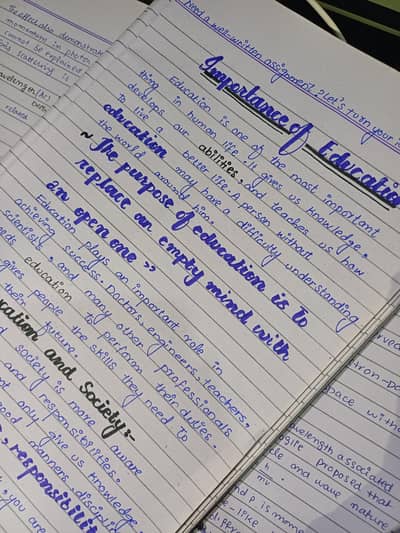 Need a well-written assignment? Let's turn your i
Importance of Educatio
Education is one of the most important
thing in human life. It gives us knowledge,
develops our abilities, and teaches us how
to live a better life. A person without
education may have a difficulty understanding
the world around him.
~ The purpose of education is to
replace an empty mind with
an open one »
Education plays an important role in
achieving success. Doctors, engineers, teachers,
scientists, and many other professionals
education to perform their duties.
gives people the skills they need to
their future.
cation and Society:-
society and make aware
responsibilities.
not only give us knowledge
good manners, discipline
responsibilit
, you are
The effect also demonstra
momentum in photon
cannot be explained
scattering is
wavelength (Δλ)
relates
erved
tron-po
pace witho
wavelength associated
oglie proposed that
cle and wave nature
h
mv
nd p is mome
-like
differ